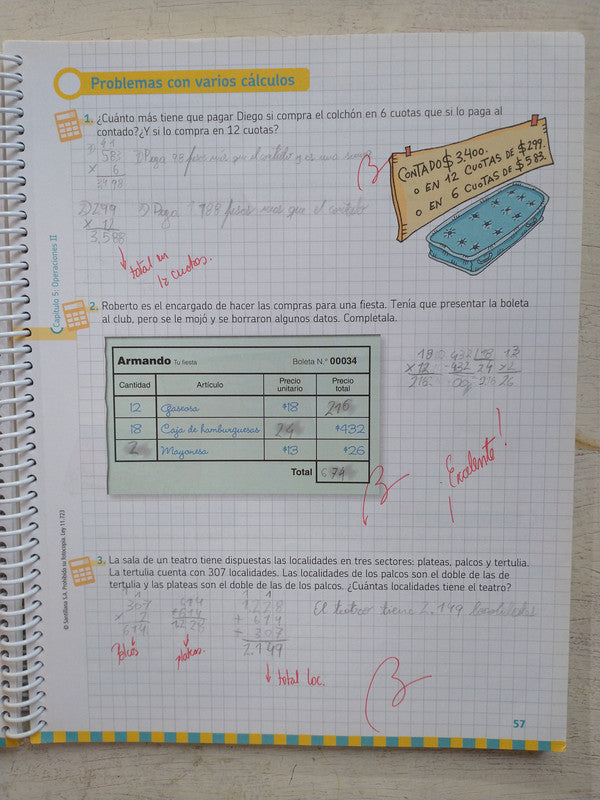 Problemas con varios cálculos
1. ¿Cuánto más tiene que pagar Diego si compra el colchón en 6 cuotas que si lo paga al
contado? ¿Y si lo compra en 12 cuotas?
1) 583
x 6
1) Paga 98 pesos más que el contado y es una
CONTADO $ 3.400.
o EN 12 CUOTAS DE $ 299.
o EN 6 CUOTAS DE $ 583.
2) 299
2) Paga 188 pesos mas que el contado
3,588
total en
12 cuotas.
Capítulo 5: Operaciones II
2. Roberto es el encargado de hacer las compras para una fiesta. Tenía que presentar la boleta
al club, pero se le mojó y se borraron algunos datos. Completala.
Armando Tu fiesta Boleta N.° 00034
Cantidad Artículo Precio unitario Precio total
12 Gaseosa $18 216
18 Caja de hamburguesas 24 $432
2 Mayonesa $13 $26
Total 674
18 432 18 13
x 12 -432 24 x 2
216 26
Exelente!
© Santillana S.A. Prohibida su fotocopia. Ley 11.723
3. La sala de un teatro tiene dispuestas las localidades en tres sectores: plateas, palcos y tertulia.
La tertulia cuenta con 307 localidades. Las localidades de los palcos son el doble de las de
tertulia y las plateas son el doble de las de los palcos. ¿Cuántas localidades tiene el teatro?
307 614 1.228
x 2 +614 + 614
614 1228 + 307
2.149
El teatro tiene 2.149 localidades
Palcos
plateas.
total loc.
57